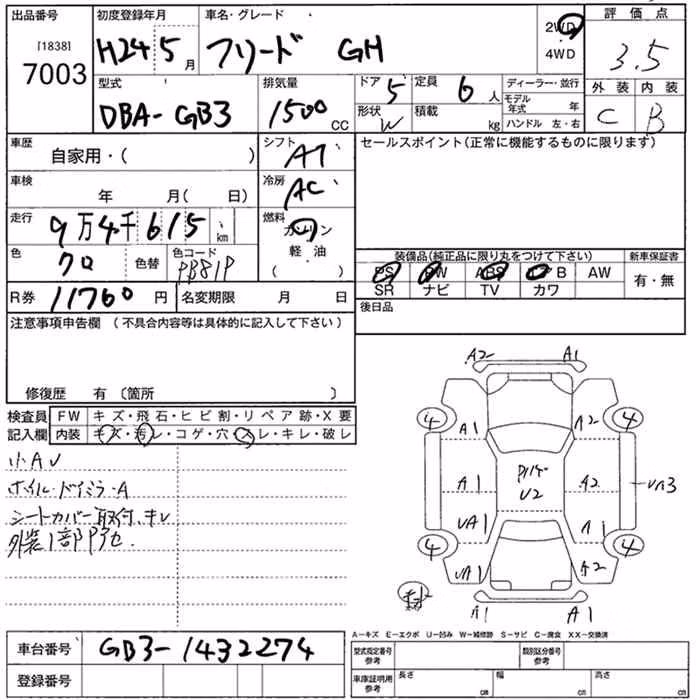 出品番号 初度登録年月 車名・グレード 評価点
[1838] 2WD
7003 H24 5月 フリード GH 4WD 3.5
型式 排気量 ドア 5 定員 6人 ディーラー・並行 外装 内装
DBA-GB3 1500 CC 形状 W 積載 kg モデル年式 年 C B
ハンドル 左・右
車歴 シフト セールスポイント(正常に機能するものに限ります)
自家用・( ) AT
車検 冷房
年 月( 日) AC
走行 燃料
9万4千615 km ガソリン
色 色替 色コード 軽油
クロ PB81P ( )
装備品(純正品に限り丸をつけて下さい) 新車保証書
PS PW ABS エアB AW 有・無
SR ナビ TV カワ
R券 11760円 名変期限 月 日 後日品
注意事項申告欄 (不具合内容等は具体的に記入して下さい)
修復歴 有 (箇所 )
検査員記入欄 FW キズ・飛石・ヒビ割・リペア跡・X要
内装 キズ・汚レ・コゲ・穴・スレ・キレ・破レ
小AU
ホイル・ドアミラーA
シートカバー取付、キレ
外装1部
A2 A1
4 4
A1 A2
A1 U2 A2 UA3
UA1 A1
4 4
UA1 A2
A1 A1
A－キズ E－エクボ U－凹み W－補修跡 S－サビ C－腐食 XX－交換済
車台番号 GB3-1432274
登録番号
型式指定番号参考 類別区分番号参考
車庫証明用参考 長さ cm 幅 cm 高さ cm